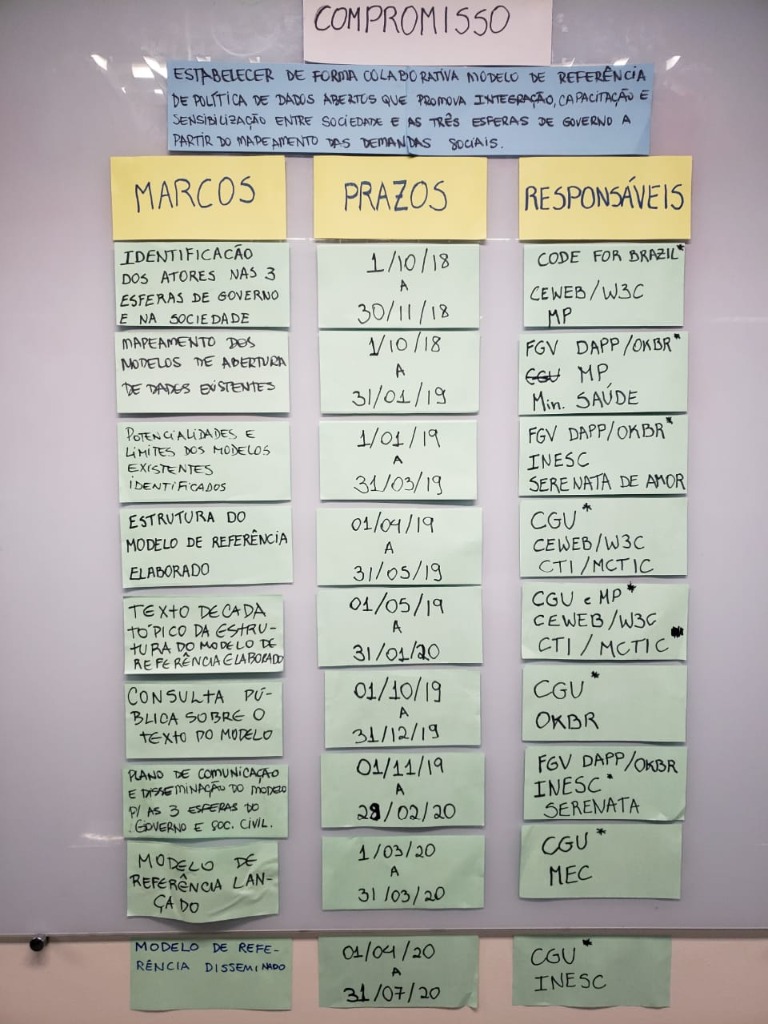 COMPROMISSO
ESTABELECER DE FORMA COLABORATIVA MODELO DE REFERÊNCIA
DE POLÍTICA DE DADOS ABERTOS QUE PROMOVA INTEGRAÇÃO, CAPACITAÇÃO E
SENSIBILIZAÇÃO ENTRE SOCIEDADE E AS TRÊS ESFERAS DE GOVERNO A
PARTIR DO MAPEAMENTO DAS DEMANDAS SOCIAIS.
MARCOS
PRAZOS
RESPONSÁVEIS
IDENTIFICAÇÃO
DOS ATORES NAS 3
ESFERAS DE GOVERNO
E NA SOCIEDADE
1/10/18
A
30/11/18
CODE FOR BRAZIL*
CEWEB/W3C
MP
MAPEAMENTO DOS
MODELOS DE ABERTURA
DE DADOS EXISTENTES
1/10/18
A
31/01/19
FGV DAPP/OKBR*
CGU MP
Min. SAÚDE
POTENCIALIDADES E
LIMITES DOS MODELOS
EXISTENTES
IDENTIFICADOS
1/01/19
A
31/03/19
FGV DAPP/OKBR*
INESC
SERENATA DE AMOR
ESTRUTURA DO
MODELO DE REFERÊNCIA
ELABORADO
01/04/19
A
31/05/19
CGU*
CEWEB/W3C
CTI/MCTIC
TEXTO DE CADA
TÓPICO DA ESTRU-
TURA DO MODELO DE
REFERÊNCIA ELABORADO
01/05/19
A
31/01/20
CGU e MP*
CEWEB/W3C
CTI/MCTIC
CONSULTA PÚ-
BLICA SOBRE O
TEXTO DO MODELO
01/10/19
A
31/12/19
CGU*
OKBR
PLANO DE COMUNICAÇÃO
E DISSEMINAÇÃO DO MODELO
P/ AS 3 ESFERAS DO
GOVERNO E SOC. CIVIL.
01/11/19
A
28/02/20
FGV DAPP/OKBR
INESC*
SERENATA
MODELO DE
REFERÊNCIA LAN-
ÇADO
1/03/20
A
31/03/20
CGU*
MEC
MODELO DE REFE-
RÊNCIA DISSEMINADO
01/04/20
A
31/07/20
CGU*
INESC